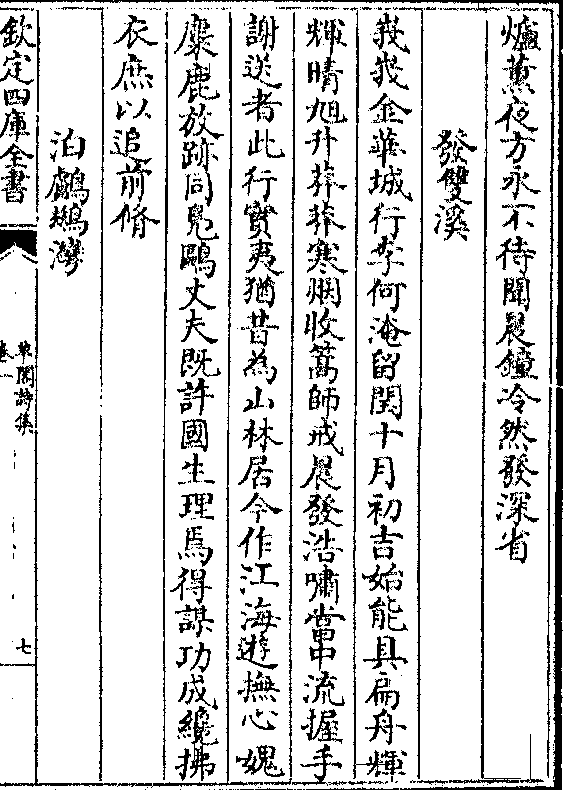 爐薰夜方永不待聞晨鐘冷然發深省
發雙溪
峩峩金華城行李何淹留閏十月初吉始能具扁舟輝
輝晴旭升莽莽寒烟收篙師戒晨發浩嘯當中流握手
謝送者此行實夷猶昔為山林居今作江海遊撫心媿
麋鹿放跡同鳧鷗丈夫既許國生理焉得謀功成纔拂
衣庶以追前脩
泊鸕鷀灣
欽定四庫全書
卷一
七